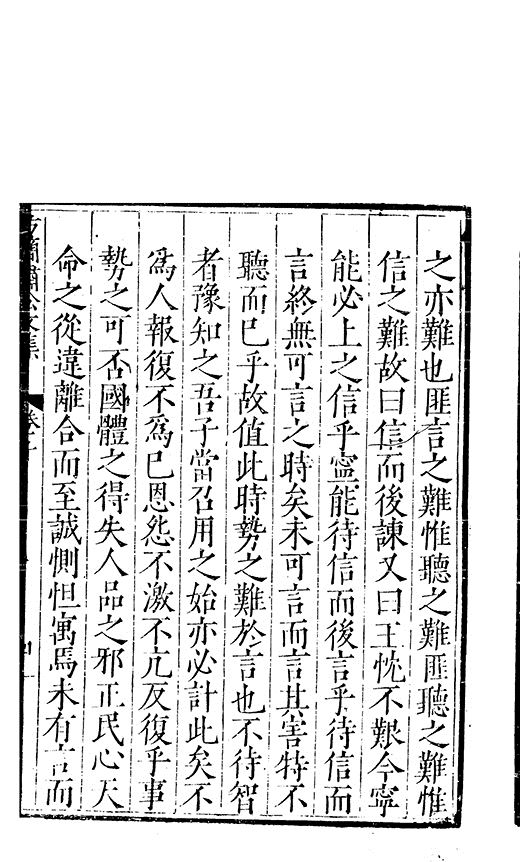 之亦難也匪言之難惟聽之難匪聽之難惟
信之難故曰信而後諫又曰王忱不艱今寧
能必上之信乎寧能待信而後言乎待信而
言終無可言之時矣未可言而言其害特不
聽而已乎故值此時勢之難於言也不待智
者豫知之吾子當召用之始亦必計此矣不
為人報復不為已恩怨不激不亢反復乎事
勢之可否國體之得失人品之邪正民心天
命之從違離合而至誠惻怛寓焉未有言而
簡肅公文集